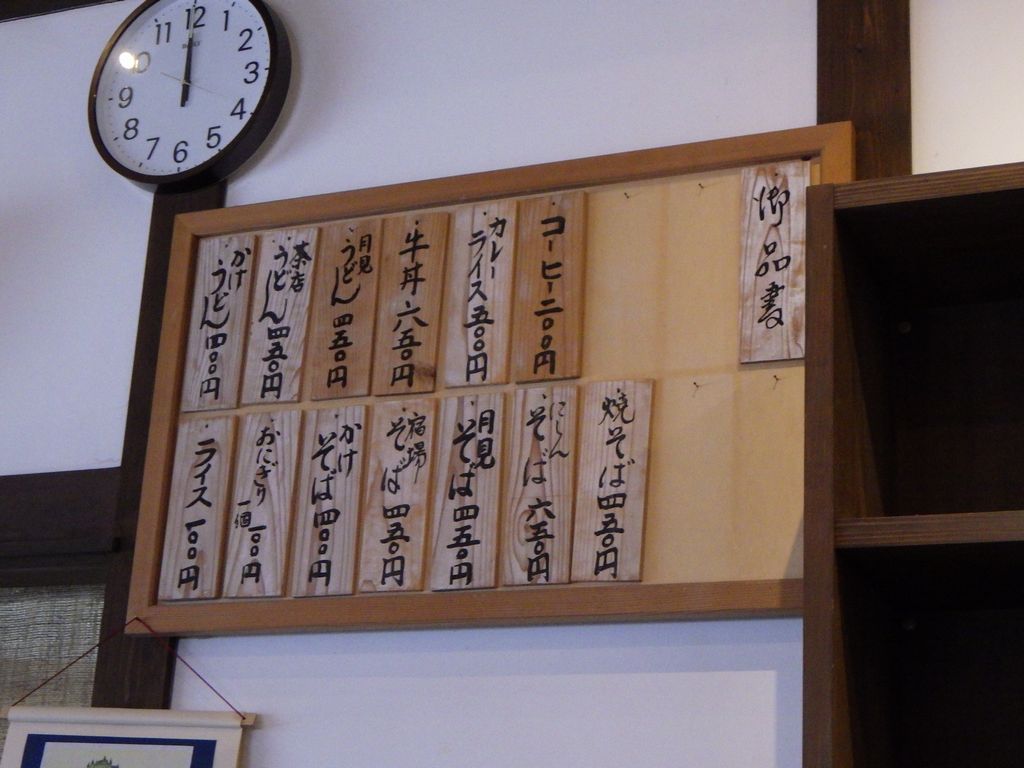 御品書
コーヒー 二〇〇円
カレーライス 五〇〇円
牛丼 六五〇円
月見うどん 四五〇円
茶店うどん 四五〇円
かけうどん 四〇〇円
焼そば 四五〇円
にしんそば 六五〇円
月見そば 四五〇円
宿場そば 四五〇円
かけそば 四〇〇円
おにぎり 一個 一〇〇円
ライス 一〇〇円
12
1
2
3
4
5
6
7
8
9
10
11